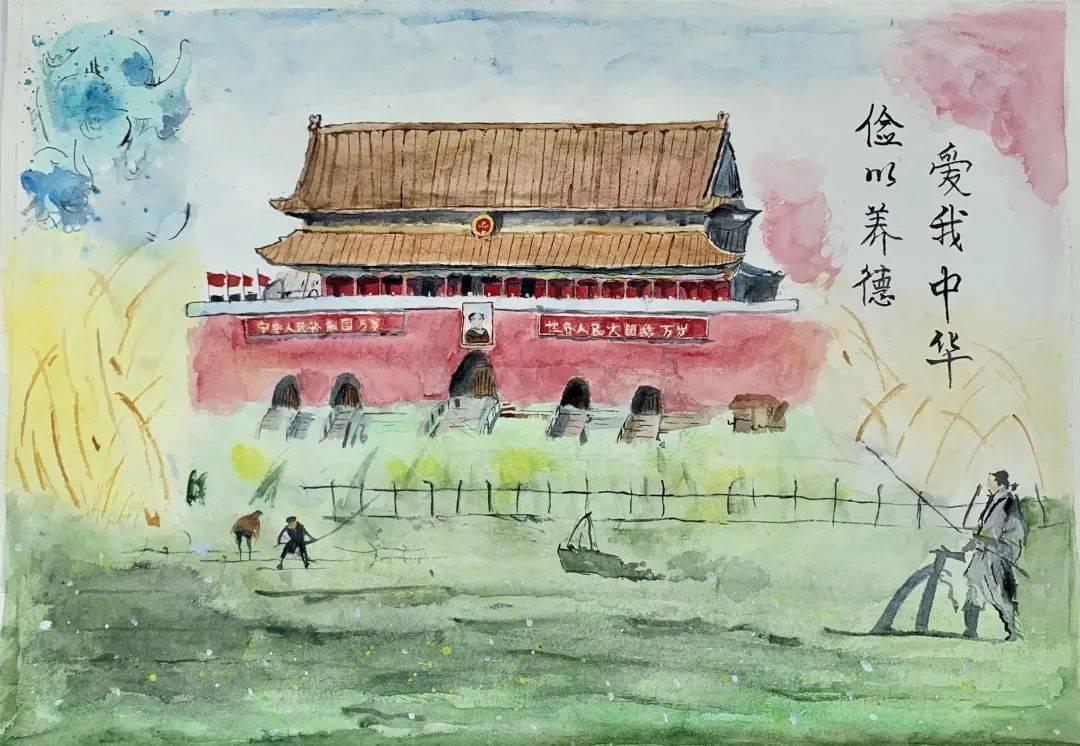 爱我中华
俭以养德
中华人民共和国万岁
世界人民大团结万岁